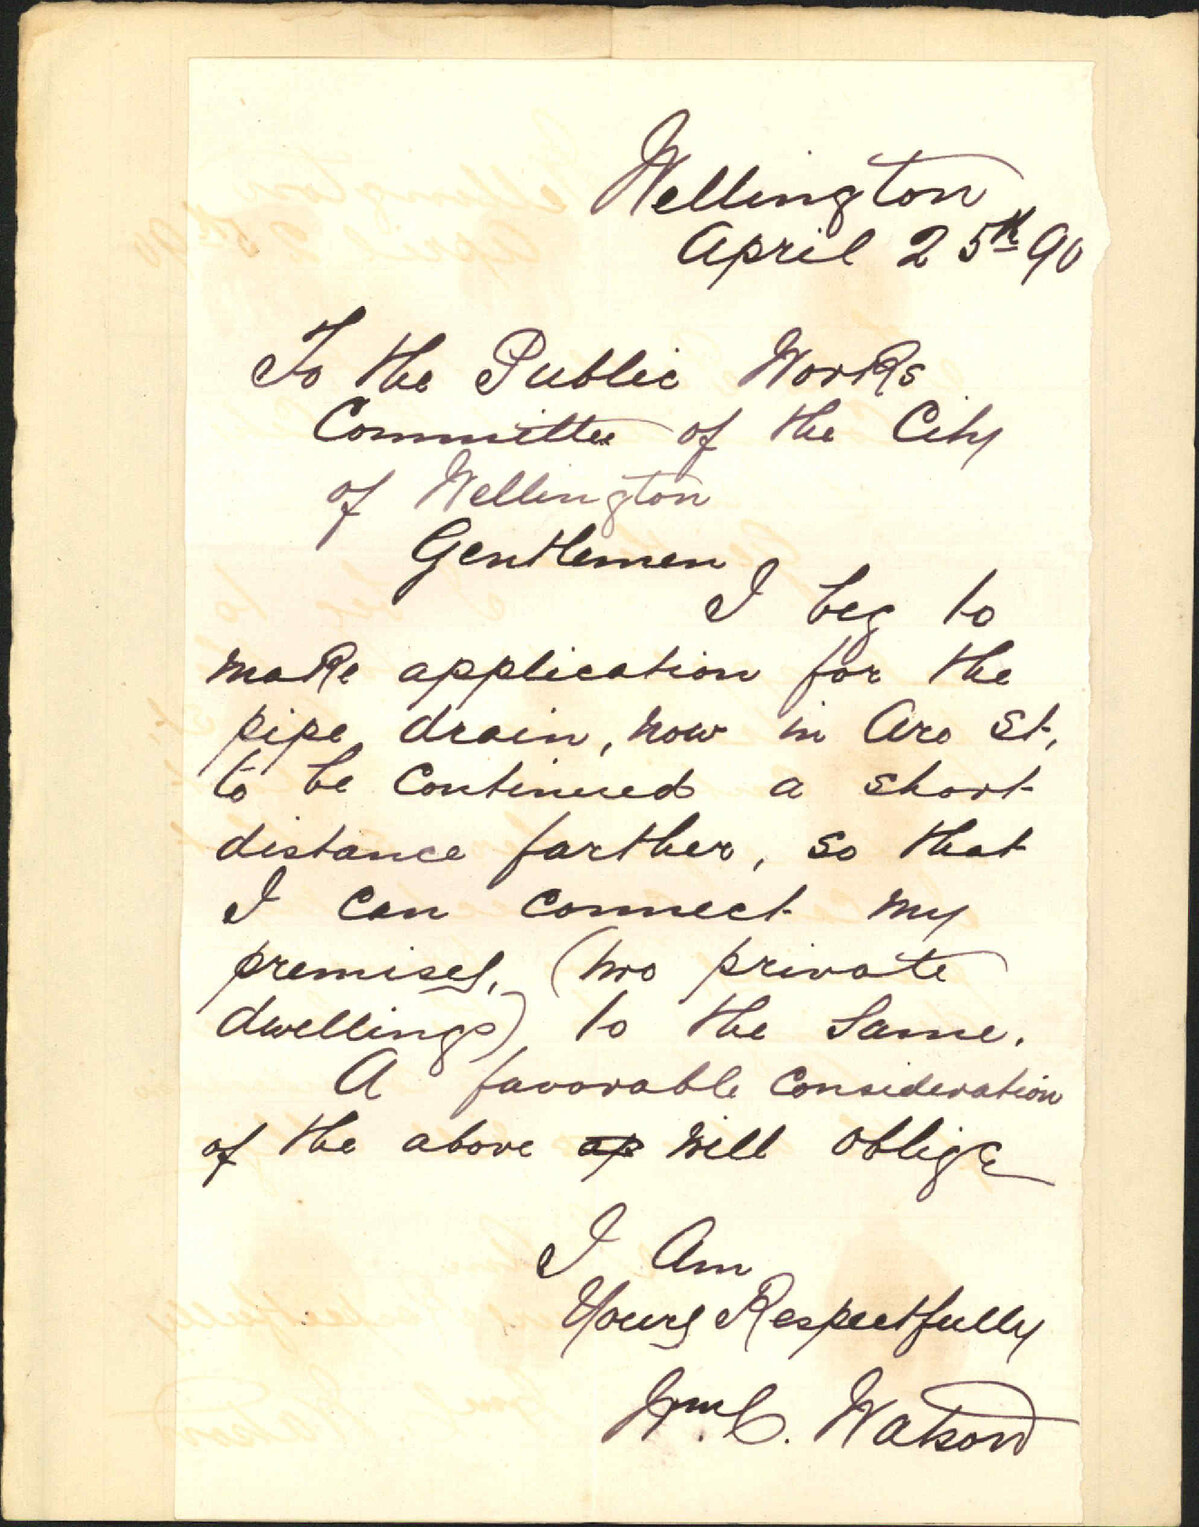 Wellington
April 25th 90
To the Public Works
Committee of the City
of Wellington
Gentlemen
I beg to
make application for the
pipe drain, now in Aro St,
to be continued a short
distance farther, so that
I can connect my
premises, (two private
dwellings) to the same.
A favorable consideration
of the above ap will oblige
I Am
Yours Respectfully
Wm. C. Watson